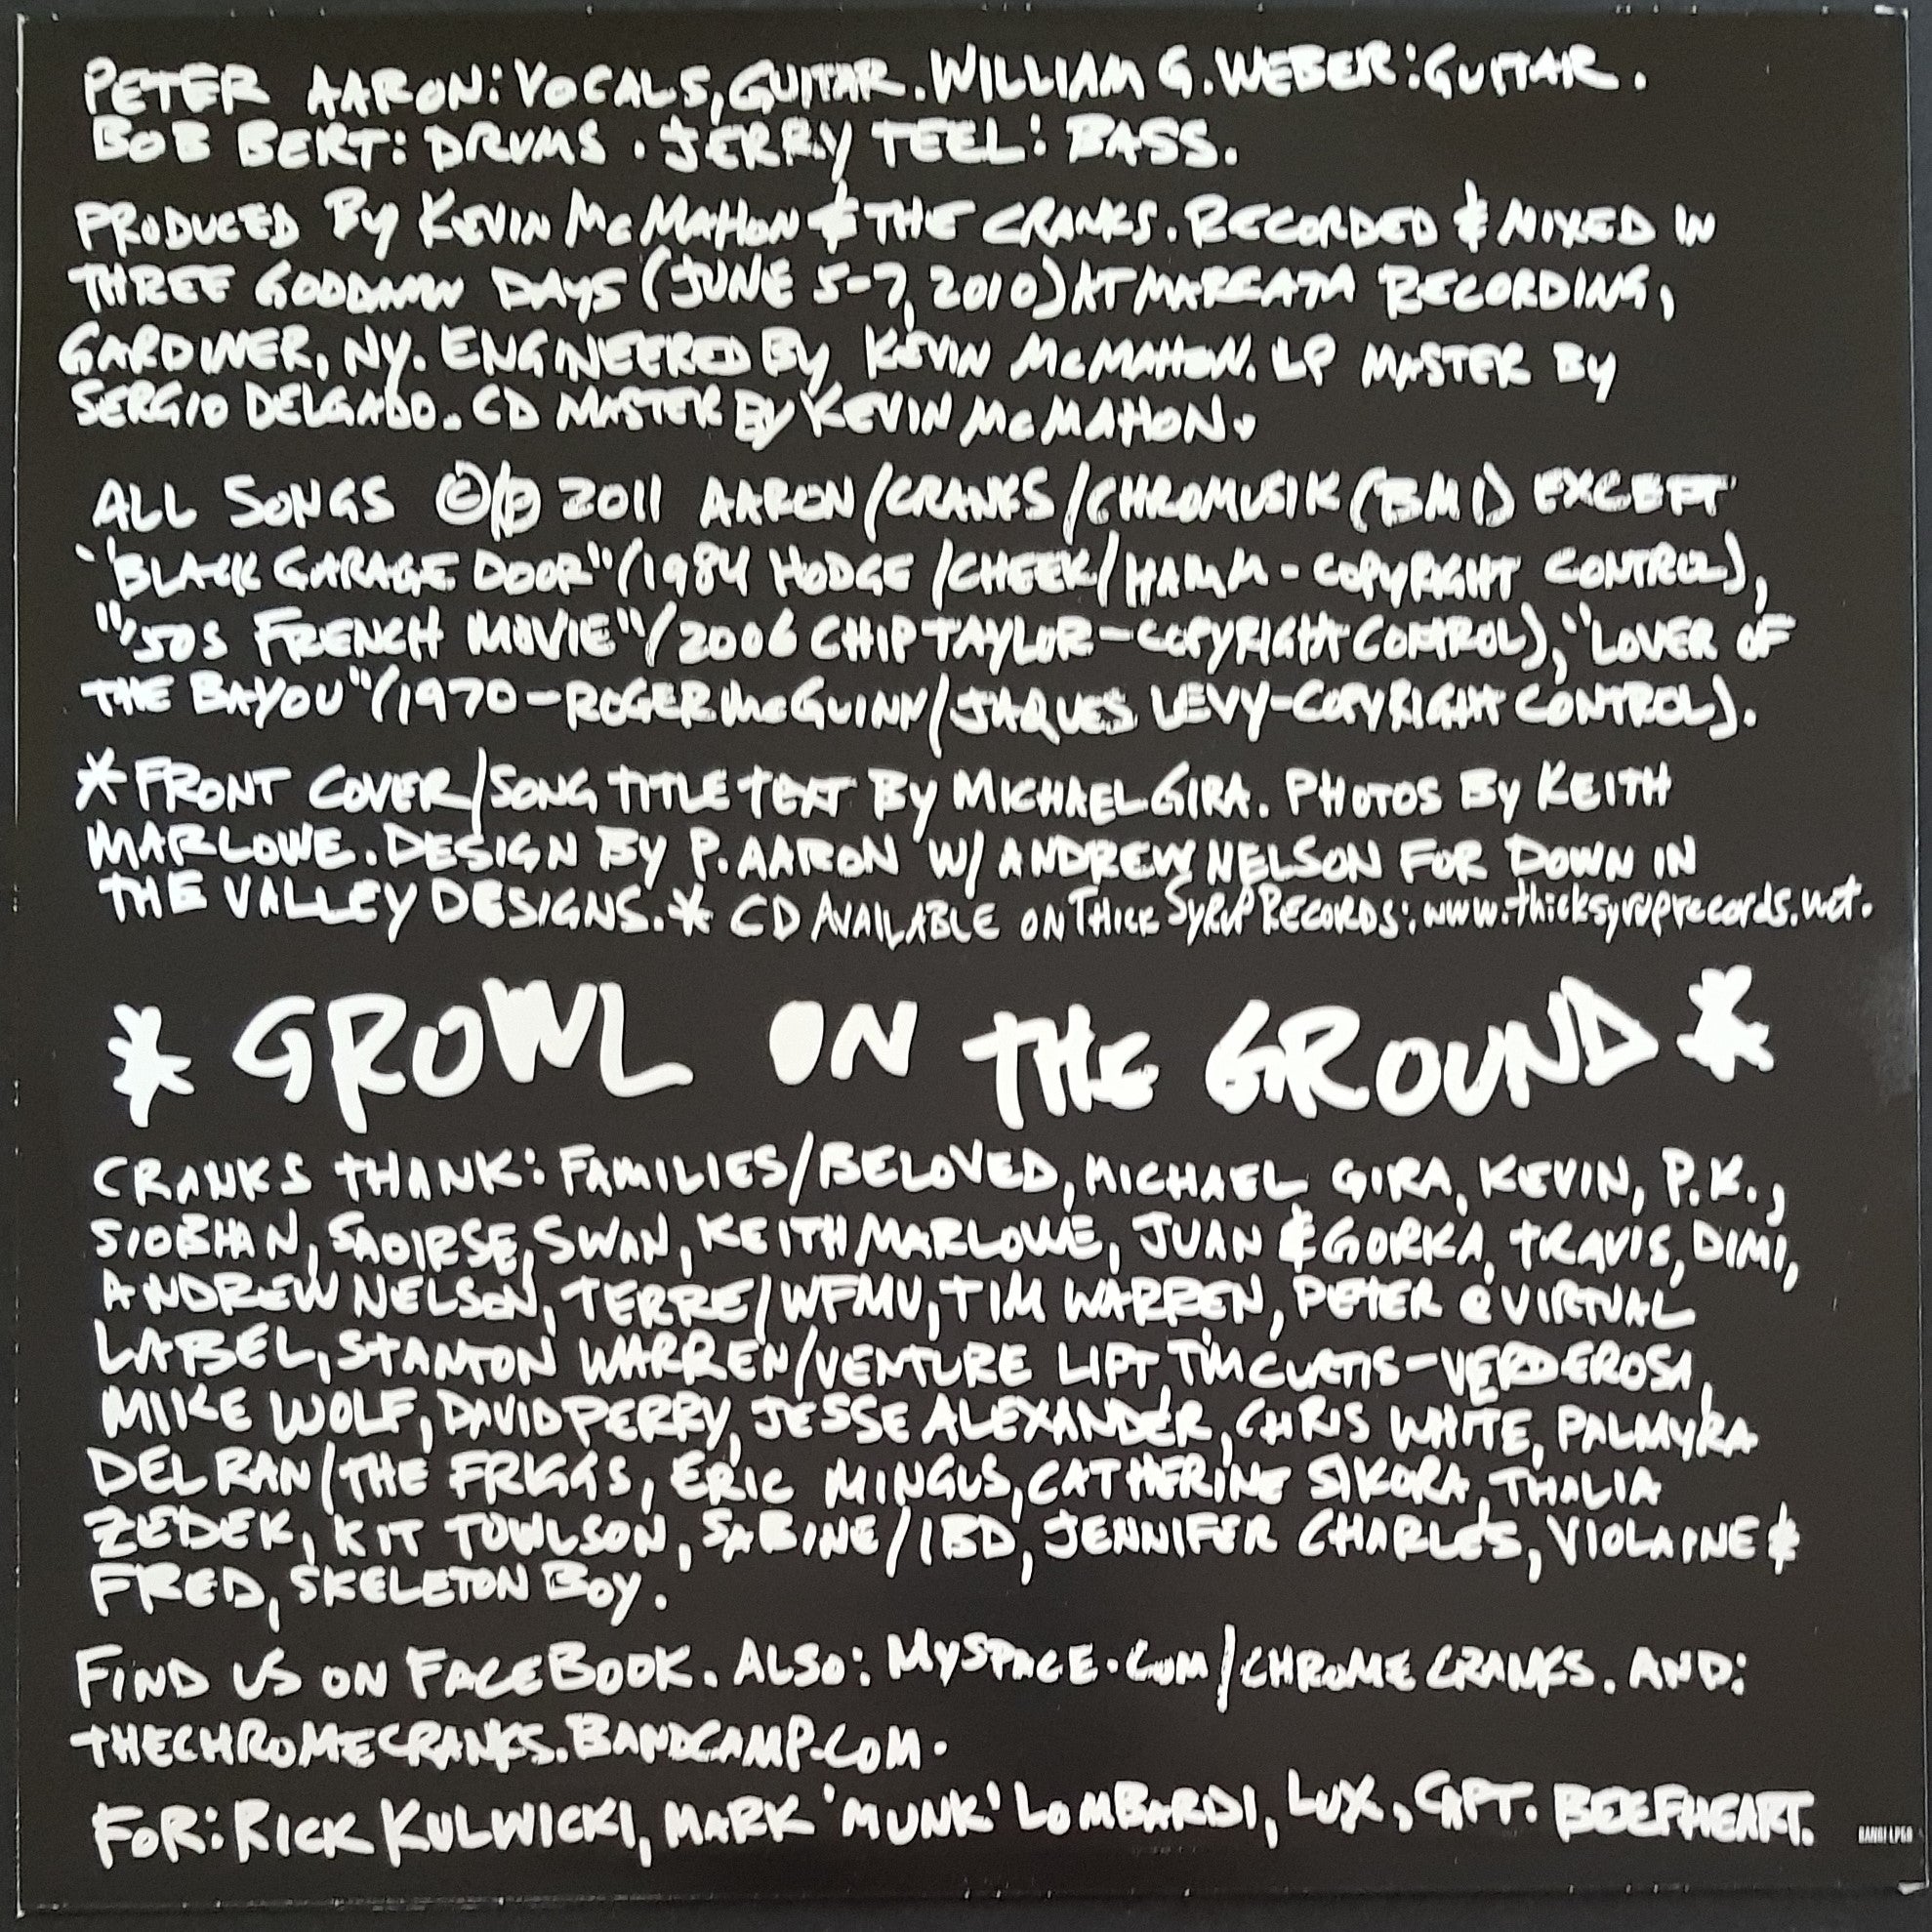 PETER AARON: VOCALS, GUITAR. WILLIAM G. WEBER: GUITAR.
BOB BERT: DRUMS. JERRY TEEL: BASS.
PRODUCED BY KEVIN McMAHON & THE CRANKS. RECORDED & MIXED IN
THREE GODDAMN DAYS (JUNE 5-7, 2010) AT MARCATA RECORDING,
GARDINER, NY. ENGINEERED BY KEVIN McMAHON. LP MASTER BY
SERGIO DELGADO. CD MASTER BY KEVIN McMAHON.
ALL SONGS ©/℗ 2011 AARON/CRANKS/CHROMUSIK (BMI) EXCEPT
"BLACK GARAGE DOOR"/(1984 HODGE/CHEEK/HAMM - COPYRIGHT CONTROL),
"'50S FRENCH MOVIE"/2006 CHIP TAYLOR-COPYRIGHT CONTROL), "LOVER OF
THE BAYOU"/(1970-ROGER McGUINN/JAQUES LEVY-COPYRIGHT CONTROL).
*FRONT COVER/SONG TITLE TEXT BY MICHAEL GIRA. PHOTOS BY KEITH
MARLOWE. DESIGN BY P. AARON W/ ANDREW NELSON FOR DOWN IN
THE VALLEY DESIGNS.* CD AVAILABLE ON THICK SYRUP RECORDS: www.thicksyruprecords.net.
* GROWL ON THE GROUND *
CRANKS THANK: FAMILIES/BELOVED, MICHAEL GIRA, KEVIN, P.K.,
SIOBHAN, SAOIRSE, SWAN, KEITH MARLOWE, JUAN & GORKA, TRAVIS, DIMI,
ANDREW NELSON, TERRE/WFMU, TIM WARREN, PETER @ VIRTUAL
LABEL, STANTON WARREN/VENTURE LIFT, TIM CURTIS-VERDEROSA,
MIKE WOLF, DAVID PERRY, JESSE ALEXANDER, CHRIS WHITE, PALMYRA
DELRAN/THE FRIGGS, ERIC MINGUS, CATHERINE SIKORA, THALIA
ZEDEK, KIT TOWLSON, SABINE/IBD, JENNIFER CHARLES, VIOLAINE &
FRED, SKELETON BOY.
FIND US ON FACEBOOK. ALSO: MYSPACE.COM/CHROMECRANKS. AND:
THECHROMECRANKS.BANDCAMP.COM.
FOR: RICK KULWICKI, MARK 'MUNK' LOMBARDI, LUX, CPT. BEEFHEART.
BANG! LP60